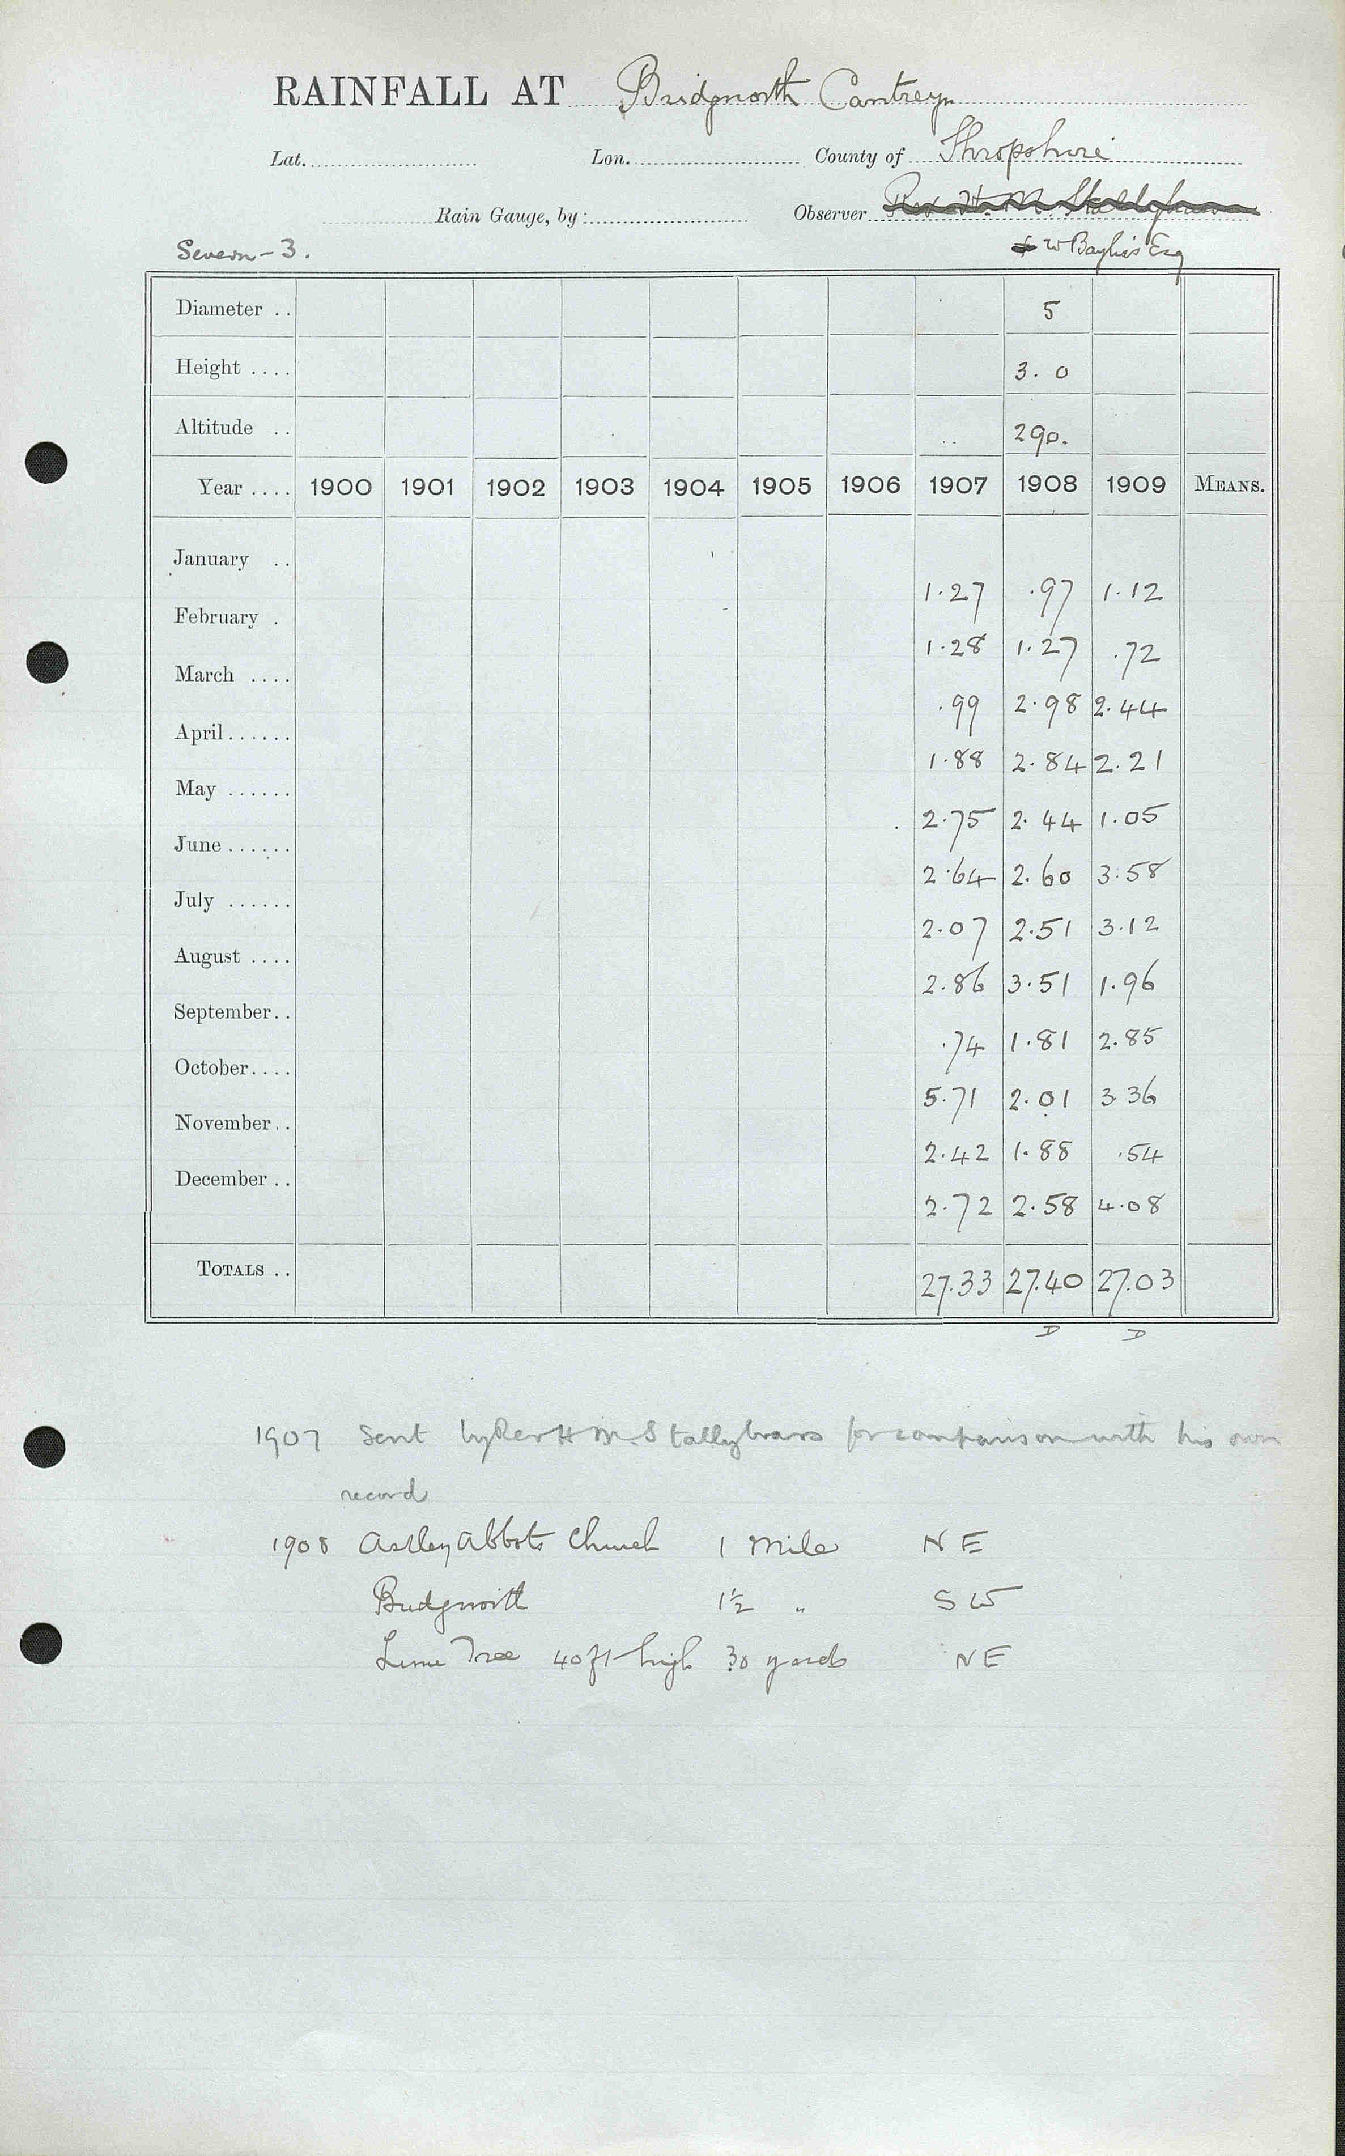 RAINFALL AT Bridgnorth Cantreyn
Lat. Lon. County of Shropshire
Rain Gauge, by: Observer Rev H. M. Stallybrass
Severn - 3. & W Bayliss Esq
Diameter .. 5
Height .... 3. 0
Altitude .. 290.
Year .... 1900 1901 1902 1903 1904 1905 1906 1907 1908 1909 MEANS.
January .. 1.27 .97 1.12
February . 1.28 1.27 .72
March .... .99 2.98 2.44
April...... 1.88 2.84 2.21
May ...... 2.75 2.44 1.05
June ...... 2.64 2.60 3.58
July ...... 2.07 2.51 3.12
August .... 2.86 3.51 1.96
September.. .74 1.81 2.85
October.... 5.71 2.01 3 36
November.. 2.42 1.88 .54
December .. 2.72 2.58 4.08
TOTALS .. 27.33 27.40 27.03
D D
1907 Sent by Rev H M. Stallybrass for comparison with his own
record
1908 Astley Abbots Church 1 Mile NE
Bridgnorth 1½ " SW
Lime Tree 40 ft high 30 yards NE